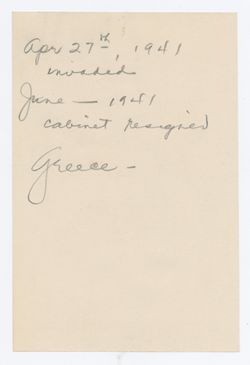 Apr 27th, 1941
invaded
June — 1941
cabinet resigned
Greece —